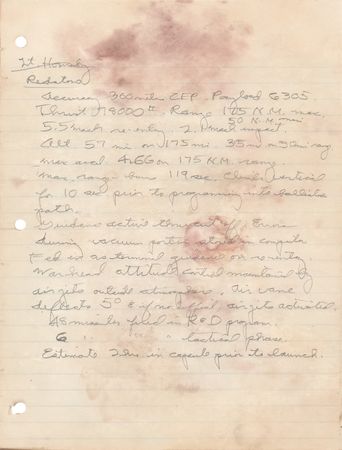 Lt. Hornsby
Redstone
Accuracy 300 meter CEP. Payload 6305
Thrust 78000 #. Range 175 N.M. max.
50 N.M. min
5.5 mach re-entry. 2. mach impact
Alt 57 mi on 175 mi 35 mi on 50 mi rng.
max accel 4.6G on 175 N.M. range.
max. range burn 119 sec. Climbs vertical
for 10 sec prior to programming into ballistic
path.
Guidance active thruout
during vacuum portion computer
Fed in as terminal guidance on re-entry
Warhead attitude control maintained by
air jets outside atmosphere. Air vane
deflects 5° & if no effect air jets activated.
48 missiles fired in R & D program.
6 " " " tactical phase.
Estimate 2 hrs. in capsule prior to launch.